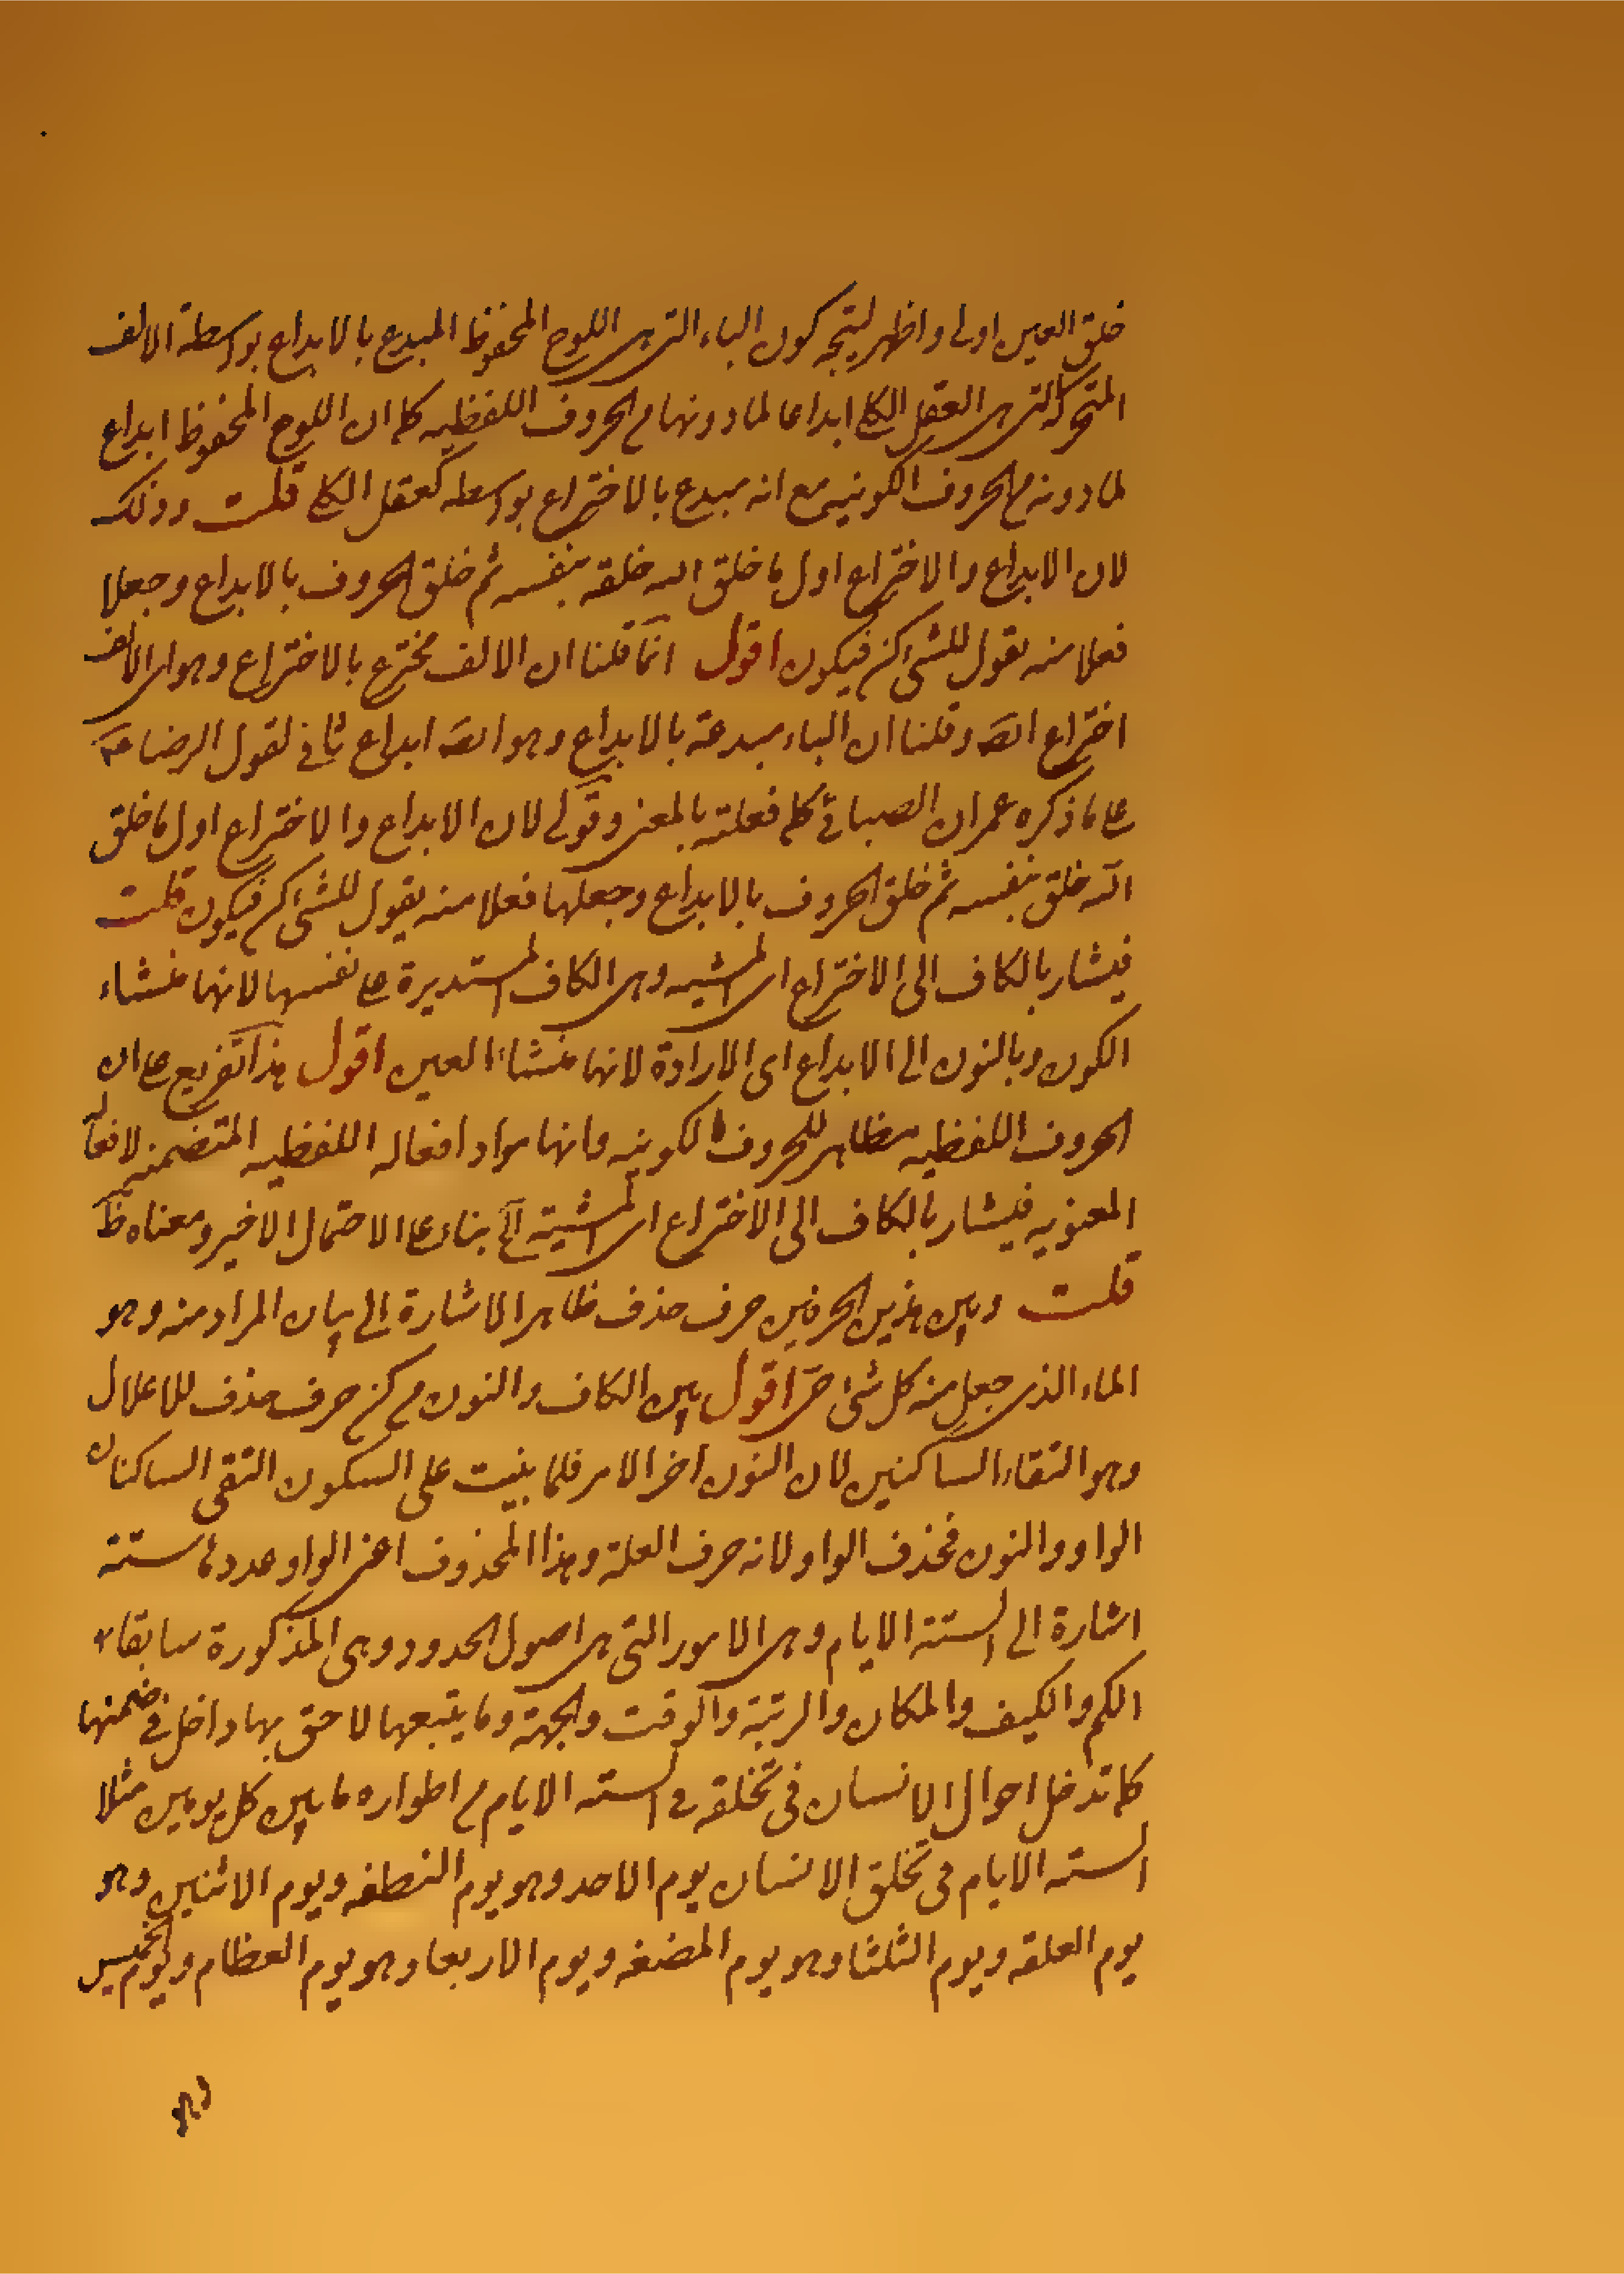 خلق العين اولى واظهر ليتجه كون الباء التى هى اللوح المحفوظ المبدع بالابداع بواسطة الالف
المتحركة التى هى العقل الكلى ابداعا لما دونها من الحروف اللفظيه كما ان اللوح المحفوظ ابداع
لما دونه من الحروف الكونيه مع انه مبدع بالاختراع بواسطه العقل الكلى قلت وذلك
لان الابداع والاختراع اول ما خلق الله خلقه بنفسه ثم خلق الحروف بالابداع وجعلا
فعلا منه يقول للشئ كن فيكون اقول انما قلنا ان الالف مخترع بالاختراع وهو اى الالف
اختراع ايضا وقلنا ان الباء مبدعة بالابداع وهو ايضا ابداع ثانى لقول الرضا عليه
على ما ذكره عمران الصبائى كلم فعلته بالمعنى وقولى لان الابداع والاختراع اول ما خلق
الله خلق بنفسه ثم خلق الحروف بالابداع وجعلها فعلا منه يقول للشئ كن فيكون قلت
فيشار بالكاف الى الاختراع اى المشيه وهى الكاف المستديرة على نفسها لانها منشاء
الكون وبالنون الى الابداع اى الارادة لانها منشاء العين اقول هذا تفريع على ان
الحروف اللفظيه مظاهر للحروف الكونيه وانها مواد افعاله اللفظيه المتضمنه لافعاله
المعنويه فيشار بالكاف الى الاختراع اى المشية الخ بناء على الاحتمال الاخير ومعناه ظ
قلت وبين هذين الحرفين حرف حذف ظاهر الاشارة الى بيان المراد منه وهو
الماء الذى جعل منه كل شئ حى اقول بين الكاف والنون من كن حرف حذف للاعلال
وهو التقاء الساكنين لان النون اخر الامر فلما بنيت على السكون التقى الساكنان
الواو والنون فحذف الواو لانه حرف العلة وهذا المحذوف اعنى الواو عددها ستة
اشارة الى الستة الايام وهى الامور التى هى اصول الحدود وهى المذكورة سابقا من
الكم والكيف والمكان والرتبة والوقت والجهة وما يتبعها لاحق بها داخل فى ضمنها
كما تدخل احوال الانسان فى تخلقه فى الستة الايام من اطواره ما بين كل يومين مثلا
الستة الايام فى تخلق الانسان يوم الاحد وهو يوم النطفه ويوم الاثنين وهو
يوم العلقه ويوم الثلثا وهو يوم المضغه ويوم الاربعا وهو يوم العظام ويوم الخميس
وهو